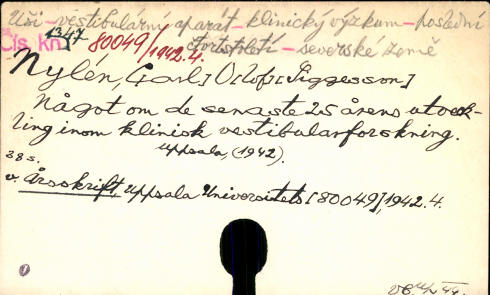 Uši - vestibulární aparát - klinický výzkum - poslední
čtvrtstoletí - severské země
Čís. kn. 1347
80049/1942.4.
Nylén, C[arl] O[lof] [Siggesson]
Något om de senaste 25 årens utveck-
ling inom klinisk vestibularforskning.
Uppsala, (1942).
38 s.
v. Årsskrift, Uppsala Universitets [80049], 1942.4.